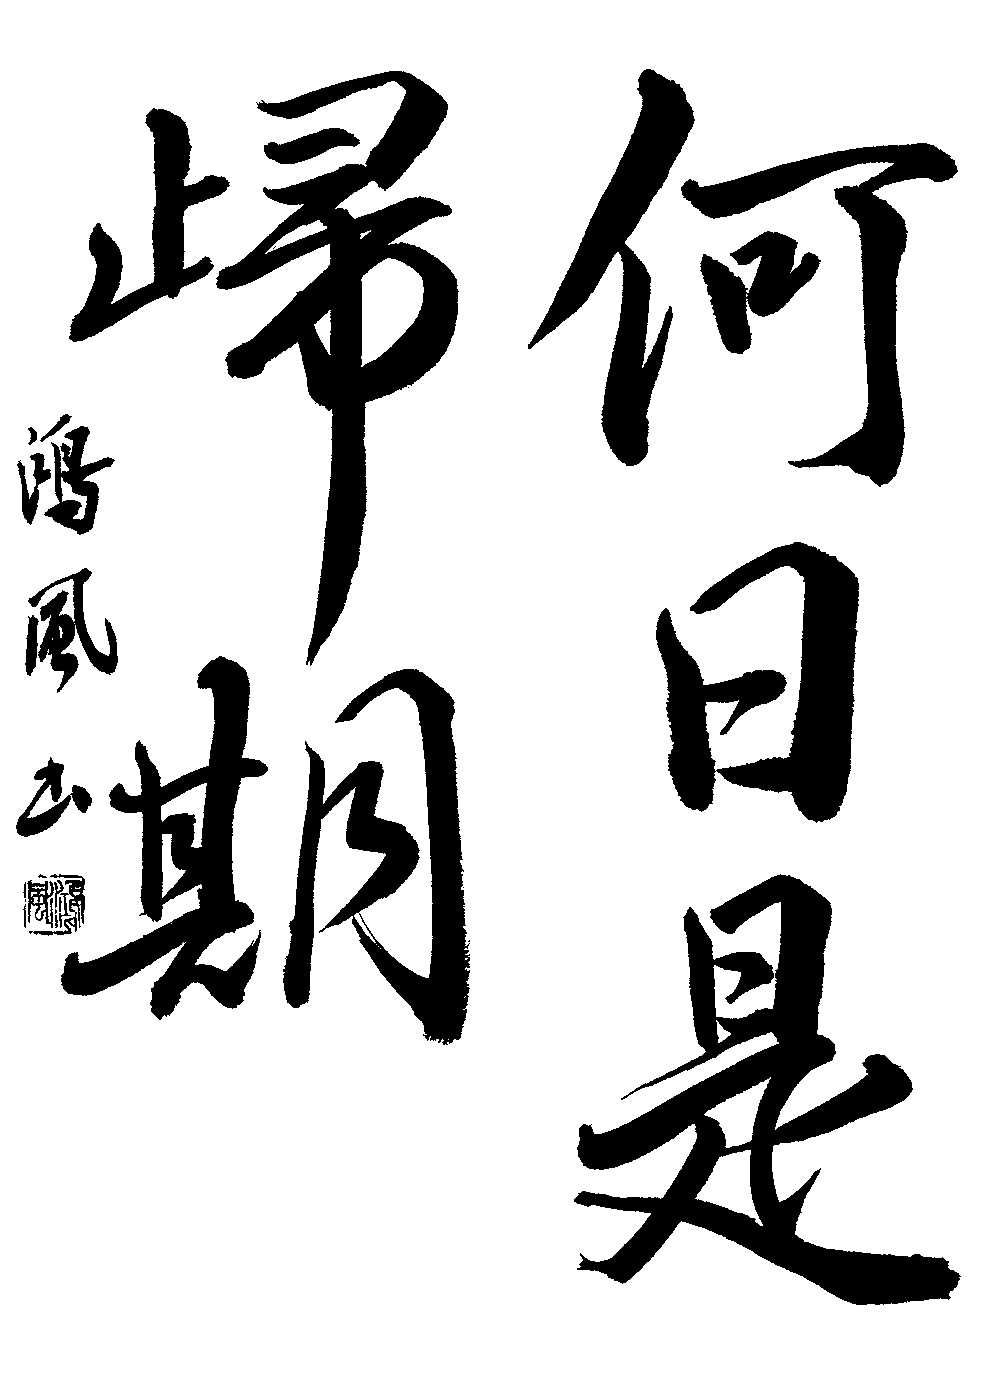 何日是
歸期
鴻風書
鴻風